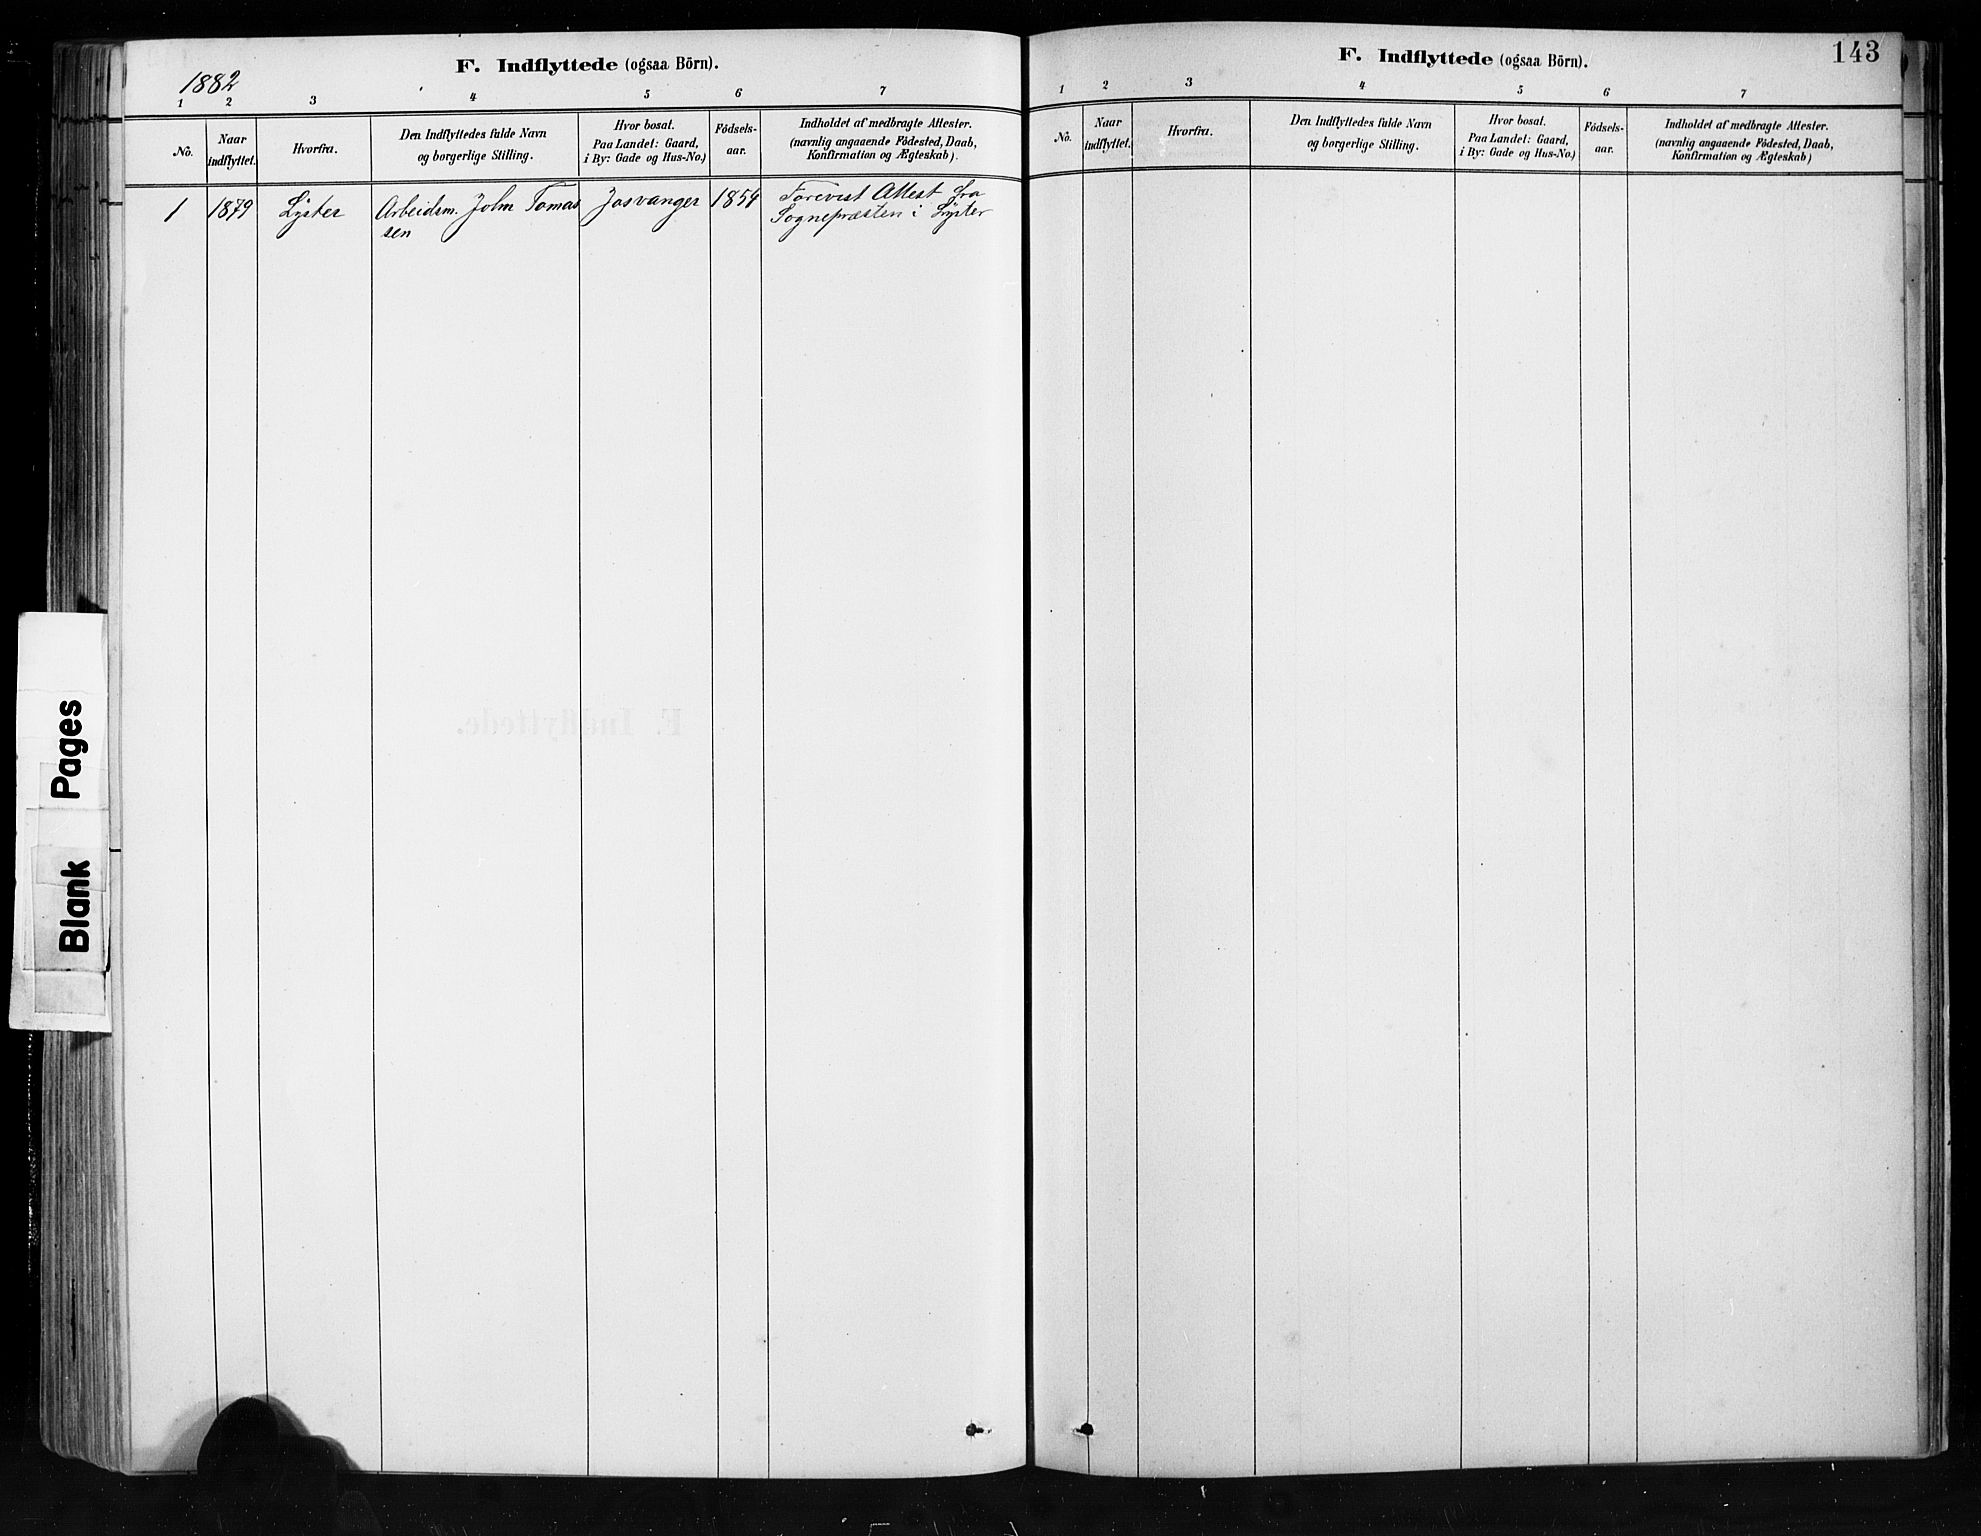 F. Indflyttede (ogsaa Börn).
1882
1 2 3 4 5 6 7
No.
Naar
indflyttet.
Hvorfra.
Den Indflyttedes fulde Navn
og borgerlige Stilling.
Hvor bosat.
Paa Landet: Gaard,
i By: Gade og Hus-No.)
Födsels-
aar.
Indholdet af medbragte Attester.
(navnlig angaaende Födested, Daab,
Konfirmation og Ægteskab).
1 1879 Lyster Arbeidsm. John Tomas
sen
Josvanger 1854
Forevist Attest fra
Sognepræsten i Lyster
F. Indflyttede.
Blank Pages
F. Indflyttede (ogsaa Börn).
143
1 2 3 4 5 6 7
No.
Naar
indflyttet.
Hvorfra.
Den Indflyttedes fulde Navn
og borgerlige Stilling.
Hvor bosat.
Paa Landet: Gaard,
i By: Gade og Hus-No.)
Födsels-
aar.
Indholdet af medbragte Attester.
(navnlig angaaende Födested, Daab,
Konfirmation og Ægteskab)